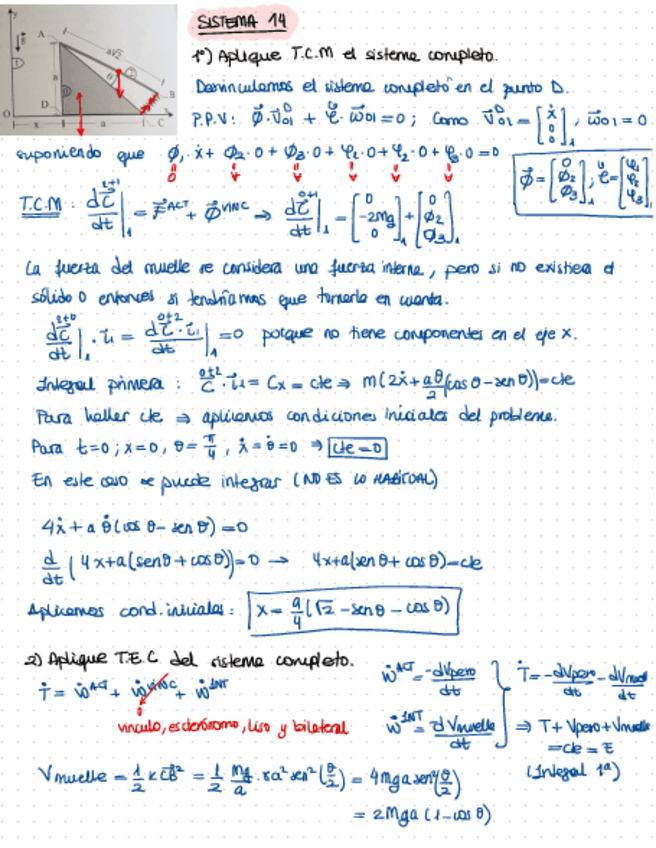 SISTEMA 14
1º) Aplique T.C.M el sistema completo.
Desvinculamos el sistema completo en el punto D.
P.P.V: Φ⃗·V⃗₀₁ᴰ + φ⃗·ω⃗₀₁ = 0; Como V⃗₀₁ᴰ = [ẋ 0 0]₁, ω⃗₀₁ = 0
suponiendo que Φ₁·ẋ + Φ₂·0 + Φ₃·0 + φ₁·0 + φ₂·0 + φ₃·0 = 0
Φ⃗ = [0 Φ₂ Φ₃]₁; φ⃗ = [φ₁ φ₂ φ₃]₁
T.C.M: dC⃗/dt|₁ = F⃗ᴬᶜᵀ + Φ⃗ⱽᴵᴺᶜ ⇒ dC⃗/dt|₁ = [0 -2mg 0]₁ + [0 Φ₂ Φ₃]₁
La fuerza del muelle se considera una fuerza interna, pero si no existiera el
sólido 0 entonces si tendríamos que tenerla en cuenta.
dC⃗/dt|₁ · i₁ = dC⃗·i₁/dt|₁ = 0 porque no tiene componentes en el eje x.
Integral primera: C⃗·i₁ = Cx = cte ⇒ m(2ẋ + aθ̇/2 (cos θ - sen θ)) = cte
Para hallar cte ⇒ aplicamos condiciones iniciales del problema.
Para t=0; x=0, θ=π/4, ẋ=θ̇=0 ⇒ cte = 0
En este caso se puede integrar (NO ES LO HABITUAL)
4ẋ + a θ̇(cos θ - sen θ) = 0
d/dt (4x + a(sen θ + cos θ)) = 0 → 4x + a(sen θ + cos θ) = cte
Aplicamos cond. iniciales: x = a/4 (√2 - sen θ - cos θ)
2) Aplique T.E.C del sistema completo.
Ṫ = Ẇᴬᶜᵀ + Ẇⱽᴵᴺᶜ + Ẇᴵᴺᵀ
0
vinculo, esclerónomo, liso y bilateral
Ẇᴬᶜᵀ = -dVpeso/dt
Ẇᴵᴺᵀ = -dVmuelle/dt
Ṫ = -dVpeso/dt - dVmuelle/dt
⇒ T + Vpeso + Vmuelle
= cte = E
(Integral 1ª)
Vmuelle = 1/2 K CB² = 1/2 Mg/a · 8a² sen²(θ/2) = 4Mga sen²(θ/2)
= 2Mga (1 - cos θ)